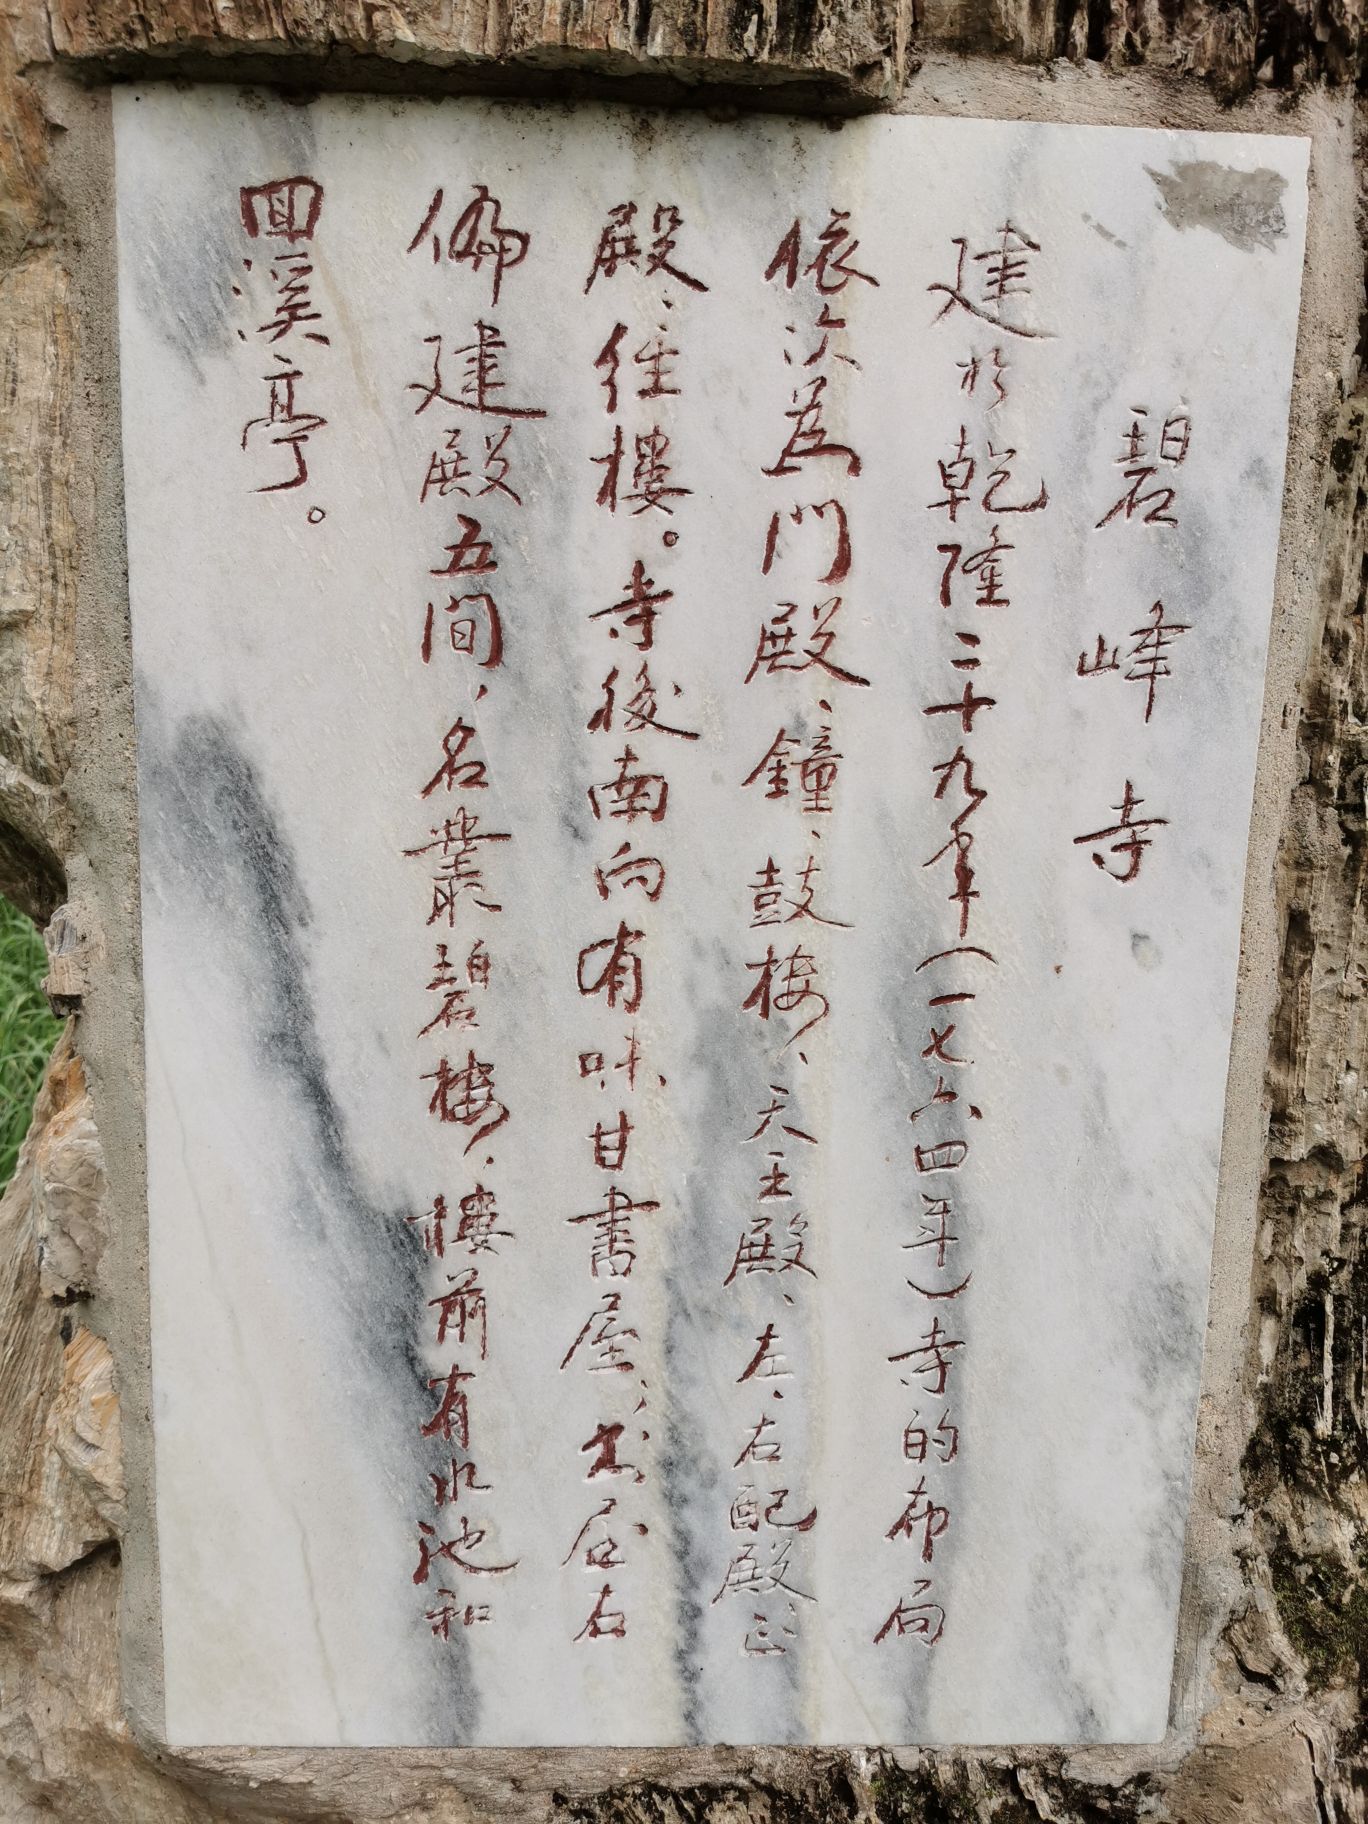 碧峰寺
建於乾隆二十九年（一七六四年）寺的布局
依次為門殿、鐘、鼓楼、天王殿、左、右配殿、正
殿、後樓。寺後南向有味甘書屋；书屋右
偏建殿五间，名叢碧楼，樓前有水池和
回溪亭。